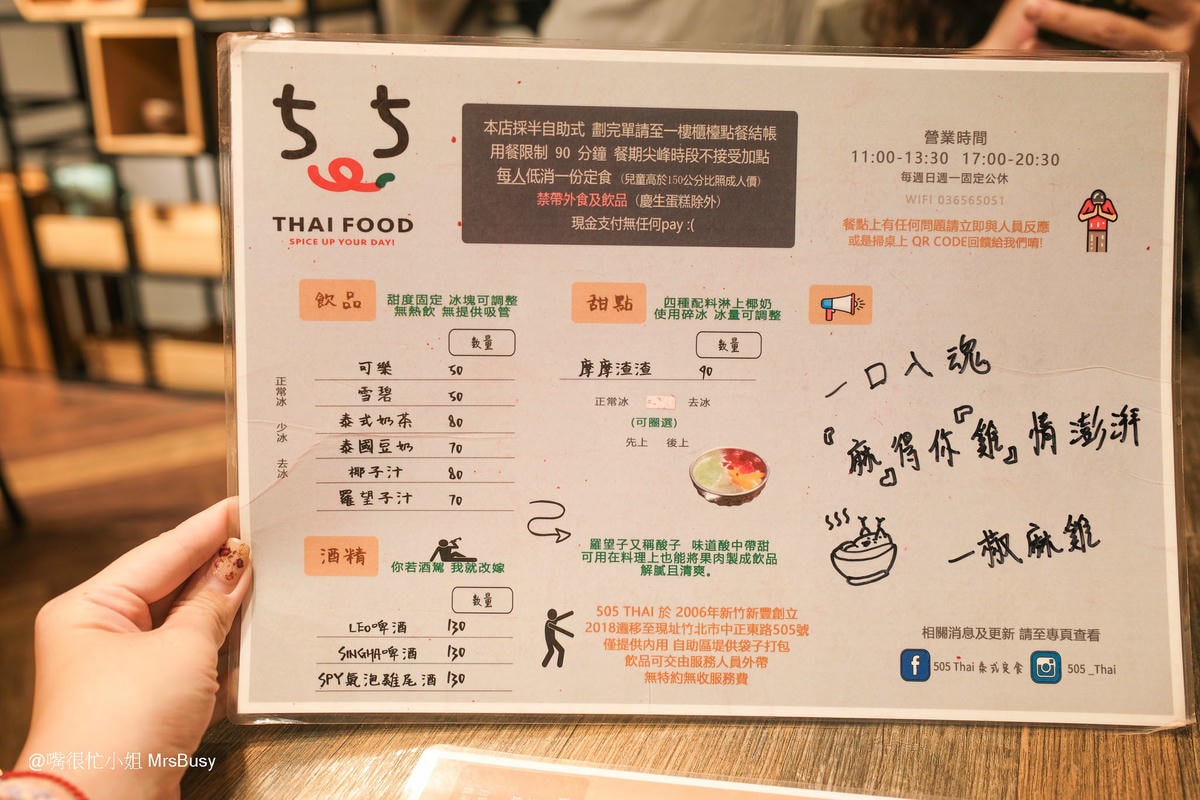 505
THAI FOOD
SPICE UP YOUR DAY!
本店採半自助式 劃完單請至一樓櫃檯點餐結帳
用餐限制 90 分鐘 餐期尖峰時段不接受加點
每人低消一份定食 (兒童高於150公分比照成人價)
禁帶外食及飲品 (慶生蛋糕除外)
現金支付無任何pay :(
營業時間
11:00-13:30 17:00-20:30
每週日週一固定公休
WIFI 036565051
餐點上有任何問題請立即與人員反應
或是掃桌上 QR CODE回饋給我們唷!
飲品
甜度固定 冰塊可調整
無熱飲 無提供吸管
數量
正常冰
少冰
去冰
可樂 50
雪碧 50
泰式奶茶 80
泰國豆奶 70
椰子汁 80
羅望子汁 70
酒精
你若酒駕 我就改嫁
數量
LEO啤酒 130
SINGHA啤酒 130
SPY氣泡雞尾酒 130
甜點
四種配料淋上椰奶
使用碎冰 冰量可調整
數量
摩摩渣渣 90
正常冰 去冰
(可圈選)
先上 後上
羅望子又稱酸子 味道酸中帶甜
可用在料理上也能將果肉製成飲品
解膩且清爽。
505 THAI 於 2006年新竹新豐創立
2018遷移至現址竹北市中正東路505號
僅提供內用 自助區堤供袋子打包
飲品可交由服務人員外帶
無特約無收服務費
一口入魂
『麻』得你『雞』情澎湃
一椒麻雞
相關消息及更新 請至專頁查看
505 Thai 泰式定食
505_Thai
@嘴很忙小姐 MrsBusy